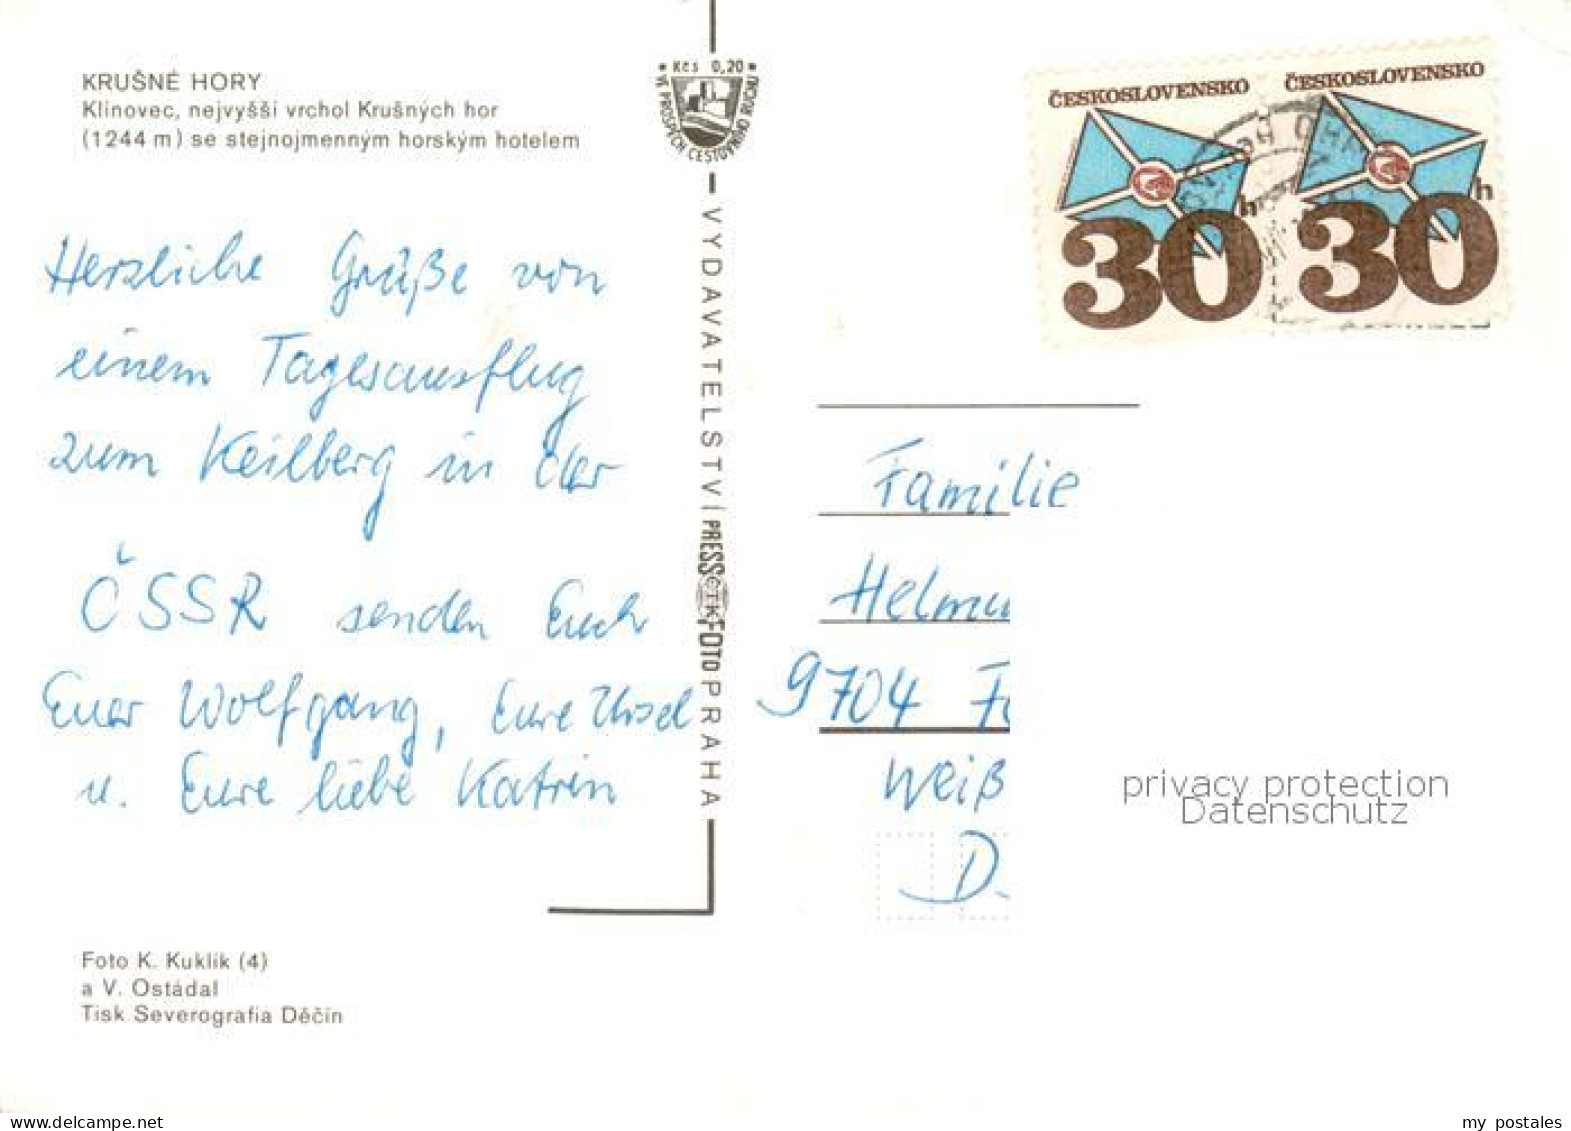 KRUŠNÉ HORY
Klínovec, nejvyšší vrchol Krušných hor
(1244 m) se stejnojmenným horským hotelem
Kčs 0,20
VE PROSPĚCH CESTOVNÍHO RUCHU
ČESKOSLOVENSKO
30 h
ČESKOSLOVENSKO
30 h
Herzliche Grüße von
einem Tagesausflug
zum Keilberg in der
ČSSR senden Euch
Euer Wolfgang, Eure Ursel
u. Eure liebe Katrin
VYDAVATELSTVÍ PRESSFOTO PRAHA
ČTK
Familie
Helmu
9704 F
Weiß
D.
privacy protection
Datenschutz
Foto K. Kuklík (4)
a V. Ostádal
Tisk Severografia Děčín
my postales